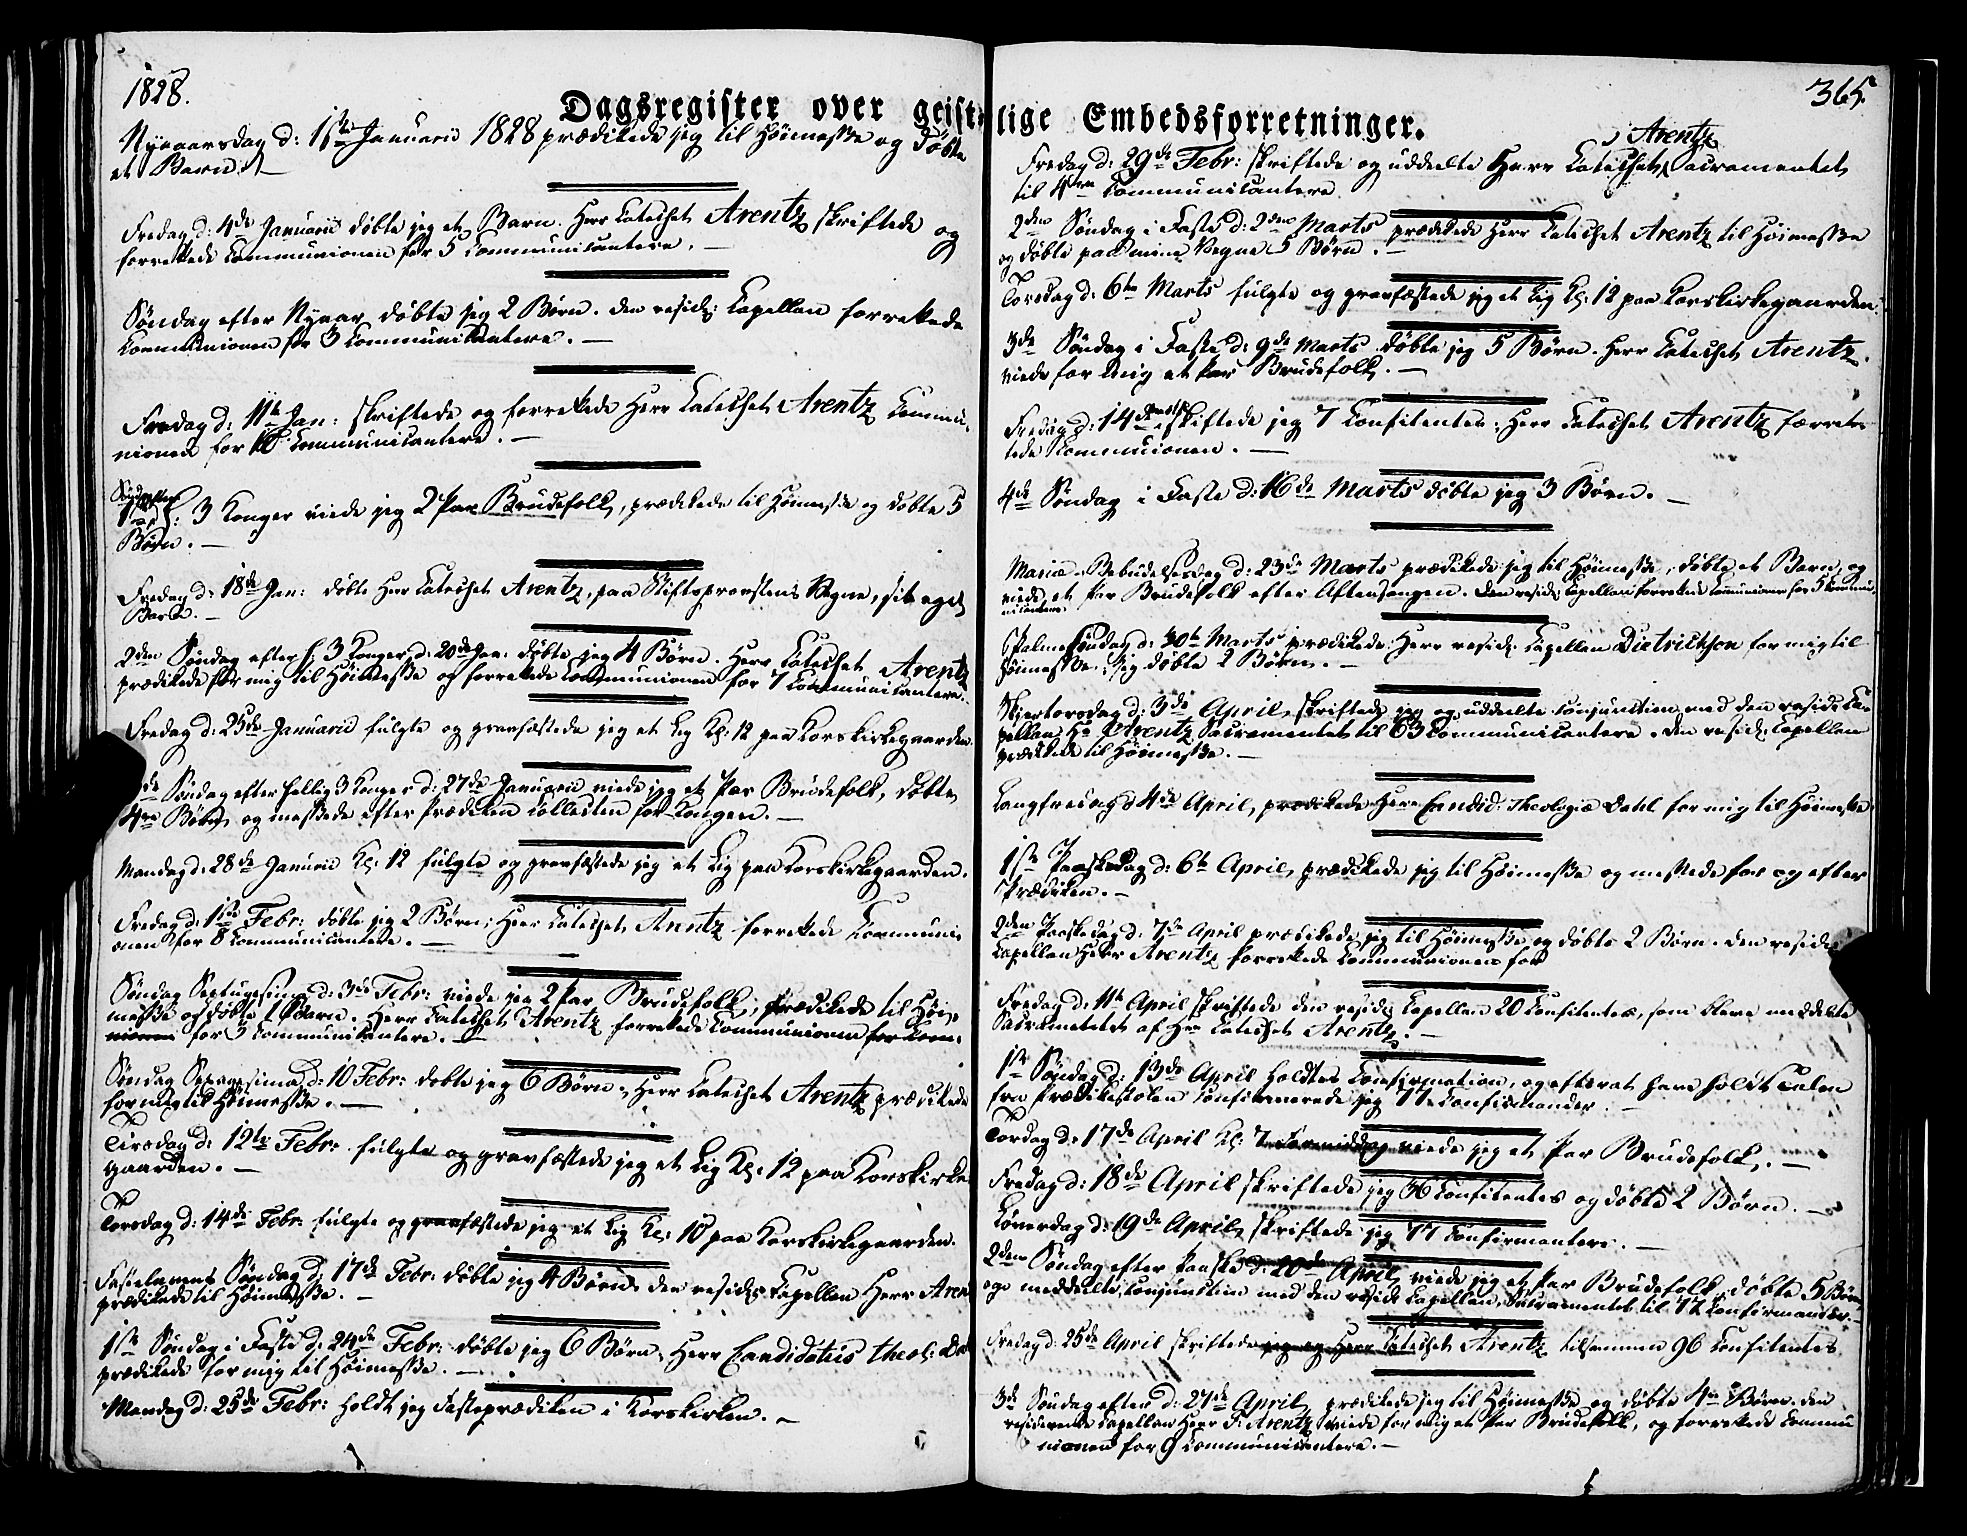 1828.
365.
Dagsregister over geistlige Embedsforretninger.
Nyaarsdag d: 1ste Januarii 1828 prædikede jeg til Høimesse og døbte
et Barn. —
Fredag d: 4de Januarii døbte jeg et Barn. Herr Catechet Arentz skriftede og
forrettede Communionen for 5 Communicantere. —
Søndag efter Nyaar døbte jeg 2 Børn. Den resid: Capellan forrettede
Communionen for 3 Communicantere. —
Fredag d: 11te Jan: skriftede og forrettede Herr Catechet Arentz Commu-
nionen for Communicantere. —
3 Konger viede jeg 2 Par Brudefolk, prædikede til Høimesse og døbte 5
Børn. —
Fredag d: 18de Jan: døbte Herr Catechet Arentz, paa Stiftsprovstens Vegne, sit eget
Barn. —
2den Søndag efter h: 3 Konger d: 20de Jan: døbte jeg 4 Børn. Herr Catechet Arentz
prædikede for mig til Høimesse og forrettede Communionen for 7 Communicantere.
Fredag d: 25de Januarii fulgte og gravfæstede jeg et Lig Kl: 12 paa Korskirkegaarden.
Søndag efter hellig 3 Konger d: 27de Januarii viede jeg et Par Brudefolk, døbte
4re Børn og messede efter Prædiken Collecten for Kongen. —
Mandag d: 28de Januarii Kl: 12 fulgte og gravfæstede jeg et Lig paa Korskirkegaarden.
Fredag d: 1ste Febr: døbte jeg 2 Børn; Herr Catechet Arentz forrettede Communi-
onen for 8 Communicantere. —
Søndag Septuagesima d: 3de Febr: viede jeg 2 Par Brudefolk, prædikede til Høi-
messe og døbte 1 Barn. Herr Catechet Arentz forrettede Communionen for Com-
munionen for 3 Communicantere. —
Søndag Sexagesima d: 10 Febr: døbte jeg 6 Børn; Herr Catechet Arentz prædikede
for mig til Høimesse. —
Tirsdag d: 12te Febr: fulgte og gravfæstede jeg et Lig Kl: 12 paa Korskirke-
gaarden. —
Torsdag d: 14de Febr: fulgte og gravfæstede jeg et Lig Kl: 10 paa Korskirkegaarden.
Fastelavens Søndag d: 17de Febr: døbte jeg 4 Børn. Den resid: Capellan Herr Aren
prædikede til Høimesse. —
1ste Søndag i Faste d: 24de Febr: døbte jeg 6 Børn; Herr Candidatus theol: Da
prædikede for mig til Høimesse. —
Mandag d: 25de Febr: holdt jeg Fasteprædiken i Korskirken. —
Arentz
Fredag d: 29de Febr: skriftede og uddeelte Herr Catechet Sacramentet
til 4re Communicantere
2den Søndag i Faste d: 2den Marts prædikede Herr Catechet Arentz til Høimesse
og døbte paa mine Vegne 5 Børn. —
Torsdag d: 6te Marts fulgte og gravfæstede jeg et Lig Kl: 12 paa Korskirkegaarden.
3de Søndag i Faste d: 9de Marts døbte jeg 5 Børn. Herr Catechet Arentz
viede for mig et Par Brudefolk. —
Fredag d: 14de Marts skriftede jeg 7 Confitentes; Herr Catechet Arentz forret-
tede Communionen. —
4de Søndag i Faste d: 16de Marts døbte jeg 3 Børn. —
Mariæ Bebudelsesdag d: 23de Marts prædikede jeg til Høimesse, døbte et Barn, og
viede et Par Brudefolk efter Aftensangen. Den resid: Capellan forrettede Communionen for 5 Commu-
nicantere
Palmesøndag d: 30te Marts prædikede Herr resid: Capellan Dietrichson for mig til
Høimesse; jeg døbte 2 Børn. —
Skjertorsdag d: 3de April skriftede jeg og uddeelte conjunctim med den resid: Ca-
pellan Hr Arentz Sacramentet til 63 Communicantere. Den resid: Capellan
prædikede til Høimesse. —
Langfredag d: 4de April, prædikede Herr Candid: Theologiæ Dahl for mig til Høimesse
1ste Paaskedag d: 6te April, prædikede jeg til Høimesse og messede for og efter
Prædiken. —
2den Paaskedag d: 7de April prædikede jeg til Høimesse og døbte 2 Børn. Den resid:
Capellan Herr Arentz forrettede Communionen for
Fredag d: 11te April skriftede den resid: Capellan 20 Confitentes, som bleve meddeelte
Sacramentet af Hrr Catechet Arentz. —
1ste Søndag d: 13de April holdtes Confirmation, og efterat have holdt Talen
fra Prædikestolen confirmerede jeg 77 Confirmander. —
Torsdag d: 17de April Kl: 7 Formiddag viede jeg et Par Brudefolk. —
Fredag d: 18de April skriftede jeg 36 Confitentes og døbte 2 Børn. —
Løverdag d: 19de April, skriftede jeg 77 Confirmantere. —
2den Søndag efter Paaske d: 20de April, viede jeg et Par Brudefolk, døbte 5 Børn
og meddeelte, conjunctim med den resid: Capellan, Sacramentet til 77 Confirmander. —
Fredag d: 25de April skriftede jeg og Herr Catechet Arentz tilsammen 96 Confitentes
3de Søndag efter d: 27de April, prædikede jeg til Høimesse og døbte 4re Børn. Den
residerende Capellan Herr F: Arentz viede for mig et Par Brudefolk, og forrettede Commu
nionen for 9 Communicantere. —